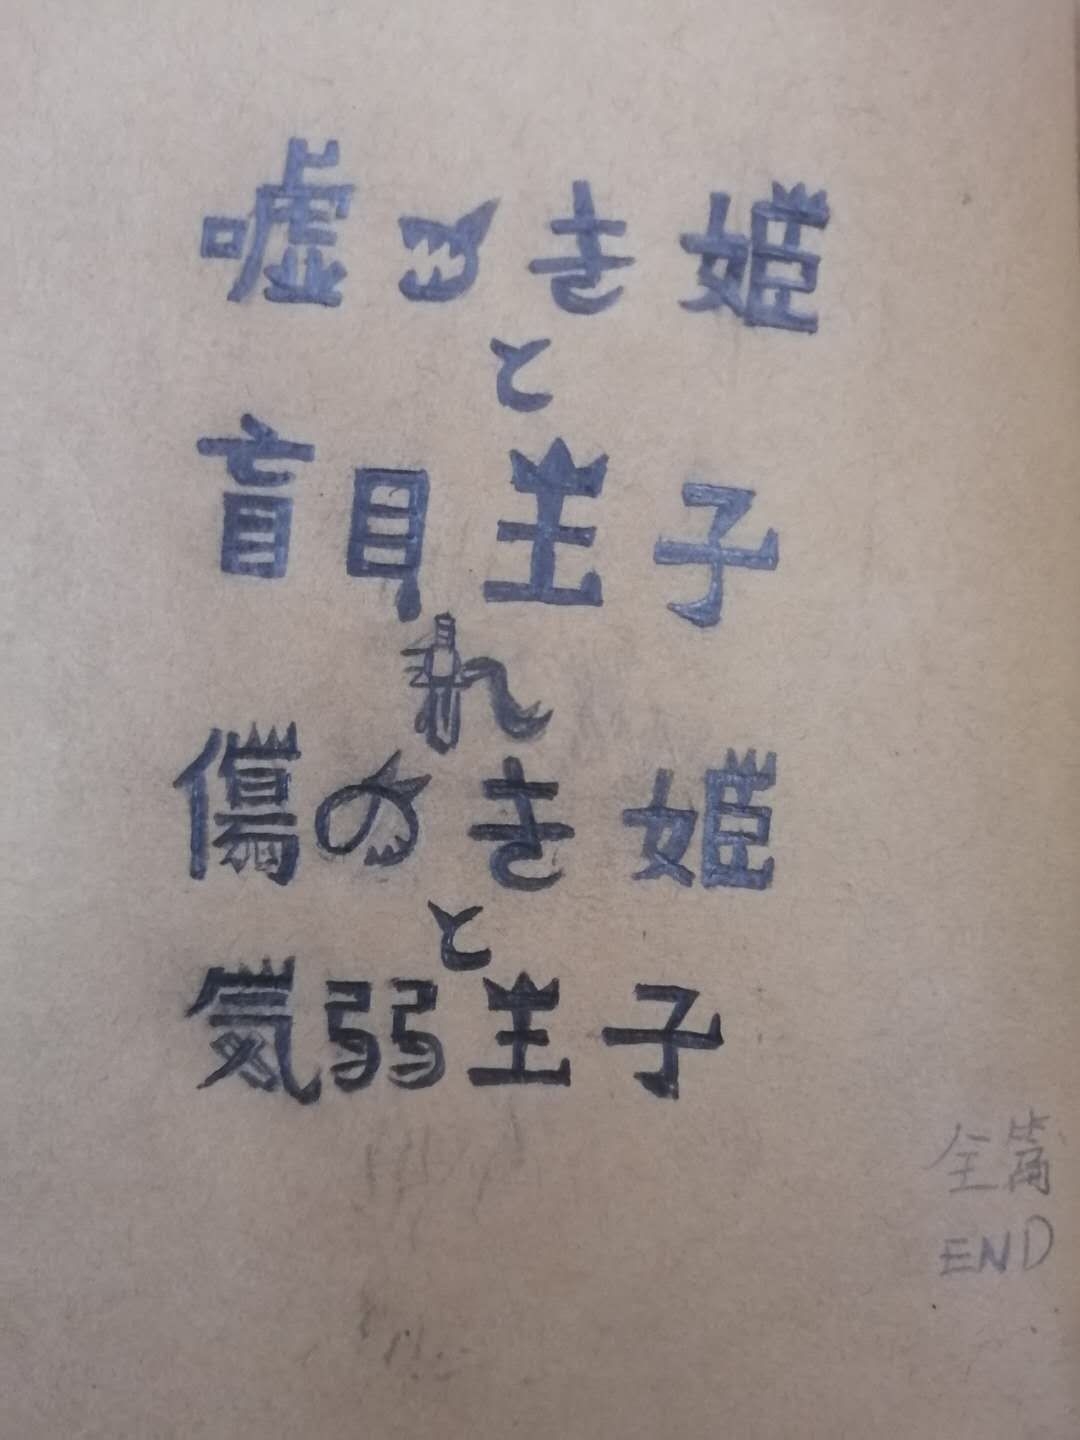 嘘つき姫
と
盲目王子
れ
傷つき姫
と
気弱王子
全篇
END